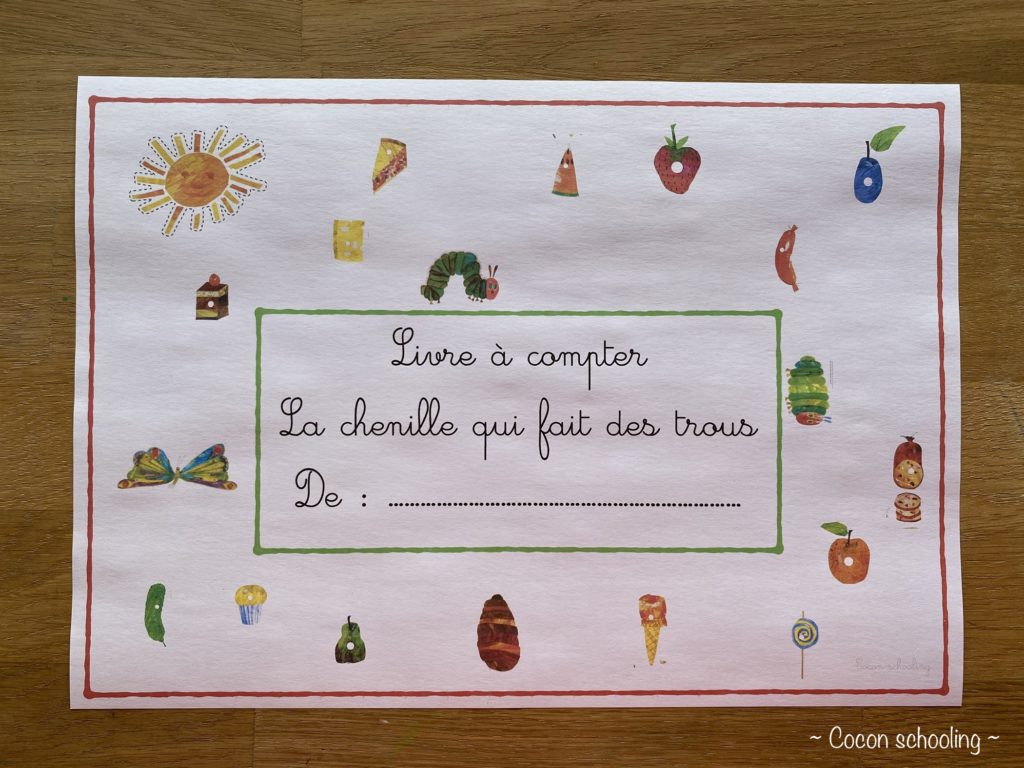 Livre à compter
La chenille qui fait des trous
De : ........................................................................
Cocon schooling
~ Cocon schooling ~